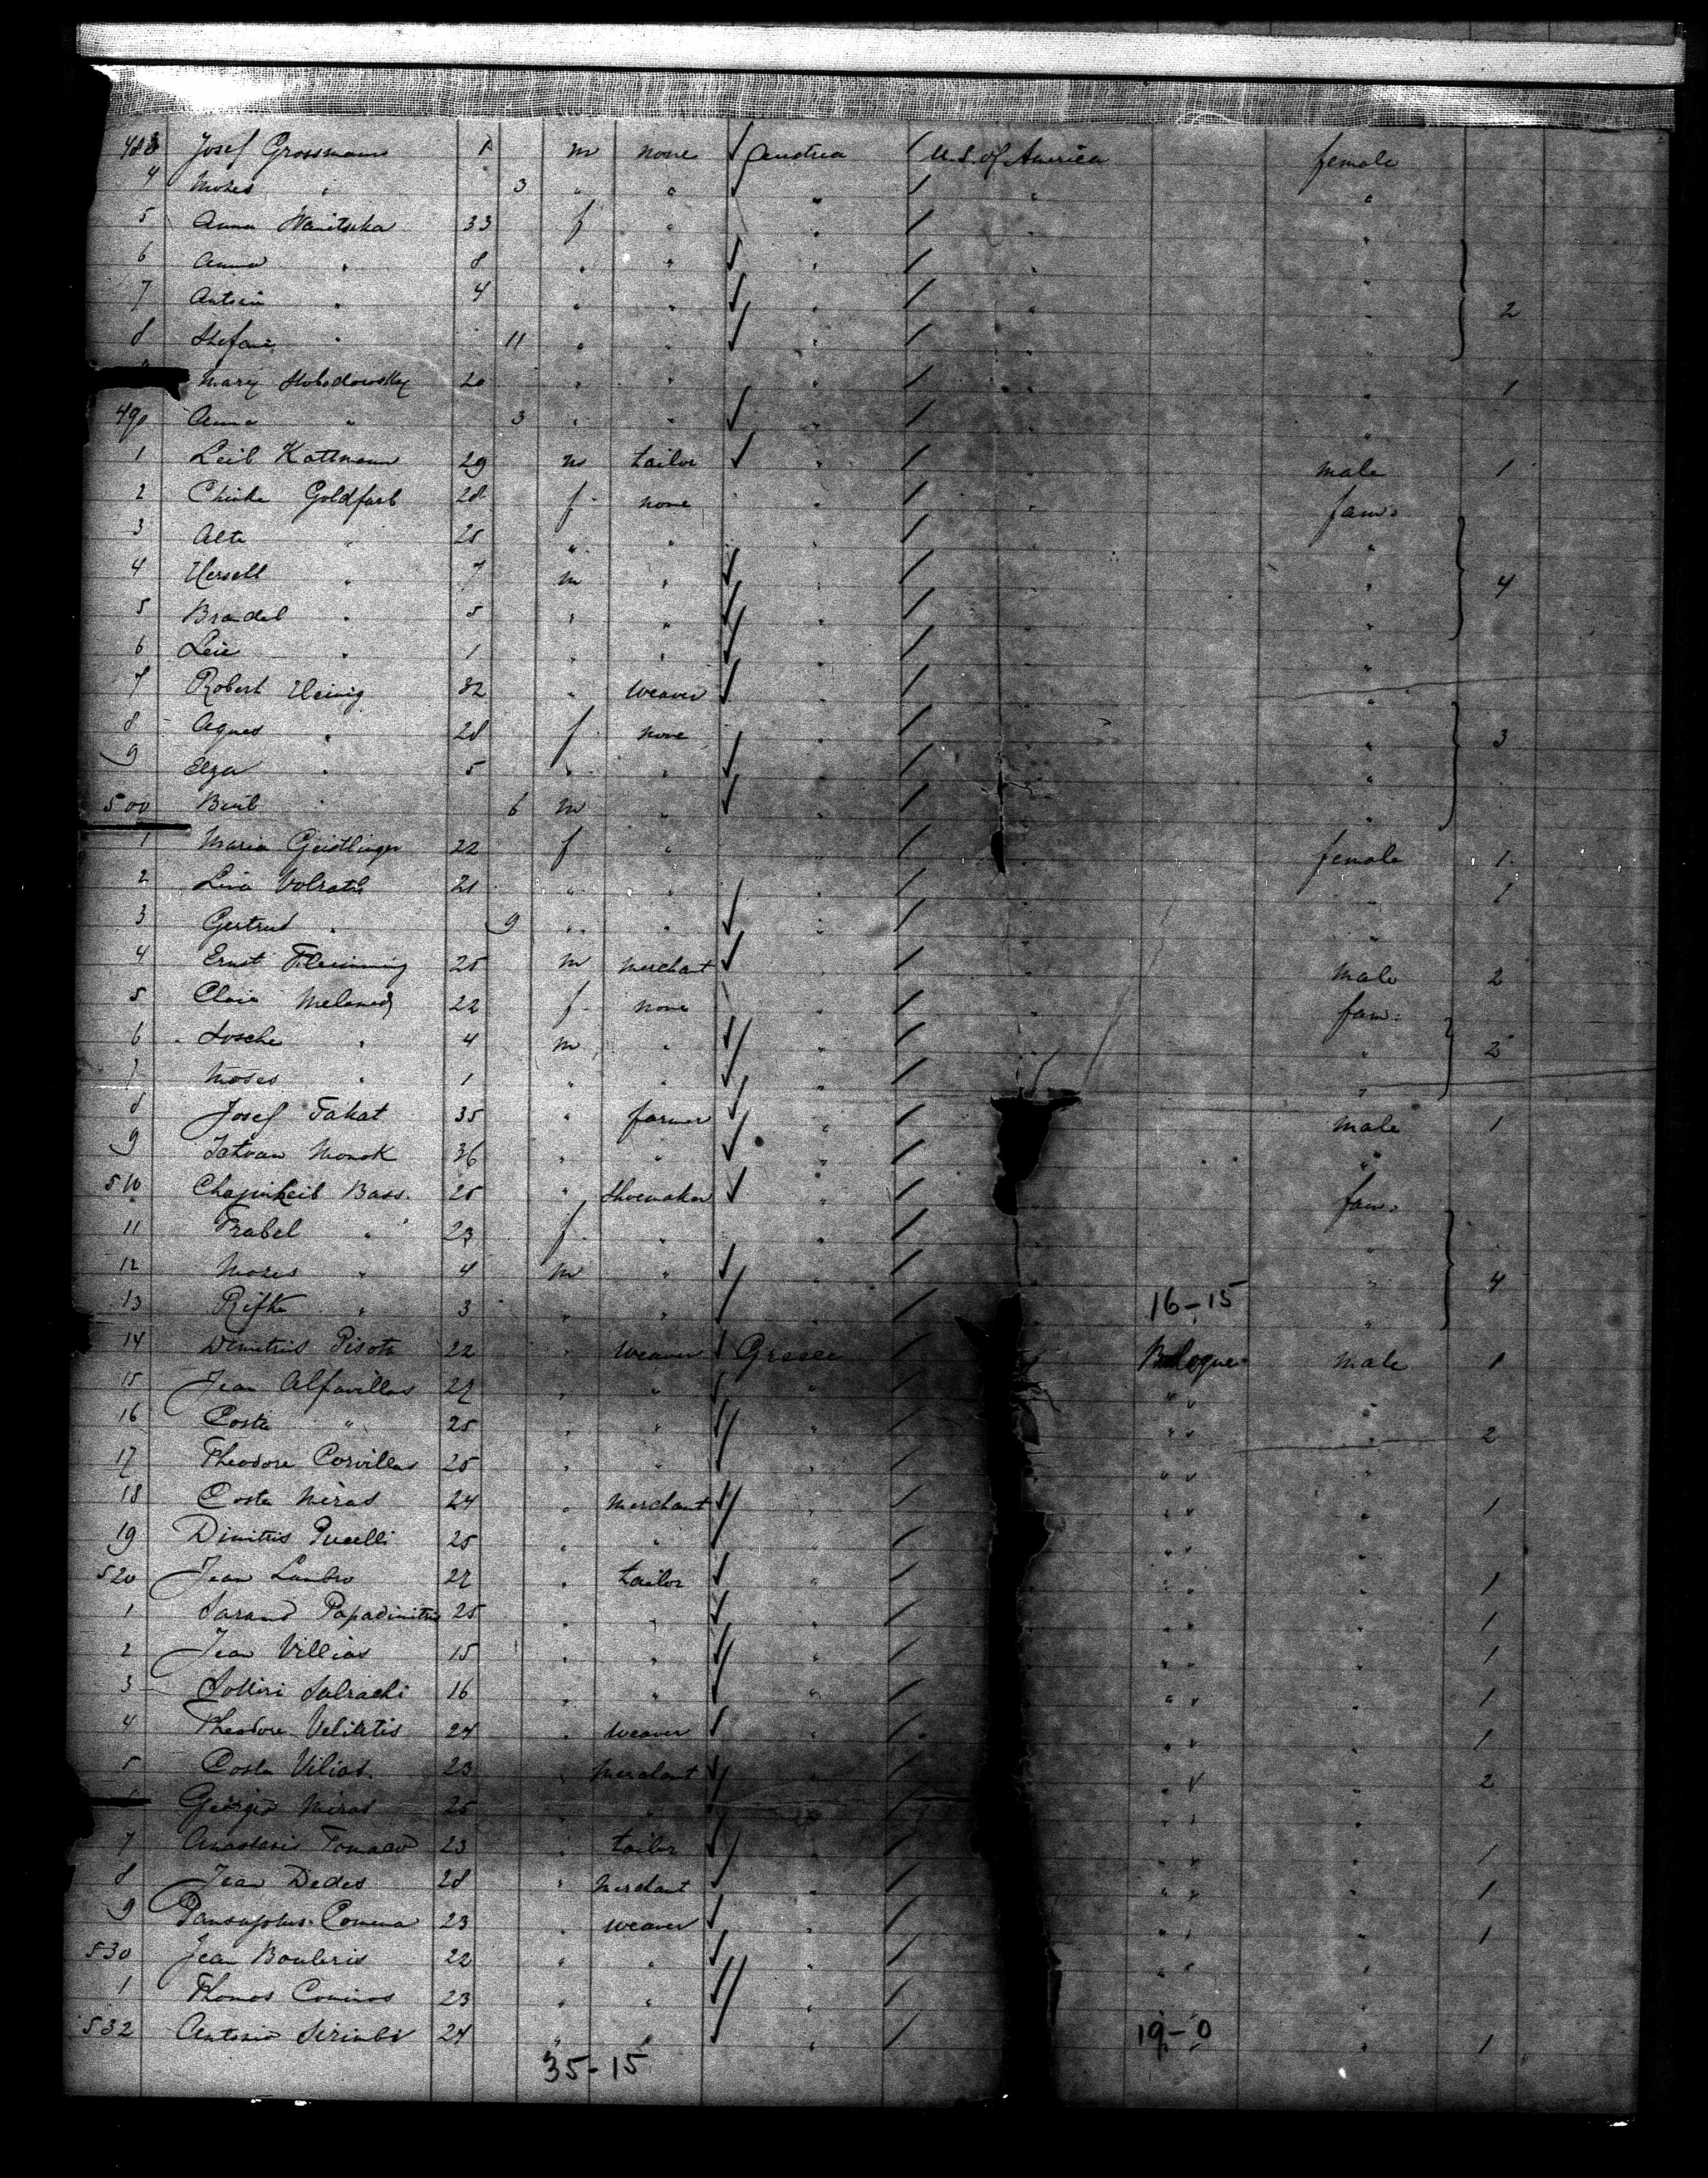 483 Josef Grossmann 1 m none Austria U.S. of America female
4 Moses " 3 " " " " "
5 Anna Wanitscka 33 f " " " "
6 Anna " 8 " " " " "
7 " 4 " " " " " 2
8 Stefani " 11 " " " " "
Mary Slobodowsky 20 " " " " " 1
490 Anna " 3 " " " " "
1 Leib Kattmann 29 m tailor " " male 1
2 Goldfarb 28 f none " " fam.
3 Alte " 25 " " " " "
4 Hersch " 7 m " " " " 4
5 Brandel " 5 " " " " "
6 Leie " 1 " " " " "
7 Robert Heinig 32 " weaver " " "
8 Agnes " 28 f none " " " 3
9 Elza " 5 " " " " "
500 " 6 m " " " "
1 Maria Geistlinger 22 f " " " female 1
2 Lina Volrath 21 " " " " " 1
3 Gertrud " 9 " " " " "
4 Ernst Flemming 25 m merchant " " male 2
5 Melamed 22 f none " " fam.
6 Sosche " 4 m " " " " 2
7 Moses " 1 " " " " "
8 Josef Takat 35 " farmer " " male 1
9 Monok 36 " " " " "
510 Bass. 25 " Shoemaker " " fam.
11 " 23 f " " " "
12 Moses " 4 m " " " " 4
13 Rifke " 3 " " " " "
16-15
14 Dimitrius Pisots 22 " weaver Greece " male 1
15 Jean Alfavillas 27 " " " " "
16 Costa " 25 " " " " " 2
17 Theodore Corvillas 25 " " " " "
18 Costa Miras 24 " merchant " " " 1
19 Dimitris Pucelli 25 " " " " "
520 Jean Lambro 27 " tailor " " " 1
1 Sarand Papadimitris 25 " " " " " 1
2 Jean Villias 15 " " " " " 1
3 Sottiri 16 " " " " " 1
4 Theodore 24 " weaver " " " 1
5 Costa Vilias 23 " Merchant " " " 2
Georgio Miras 25 " " " " "
7 Anastasis 23 " tailor " " " 1
8 Jean Dedes 28 " Merchant " " " 1
9 Comena 23 " weaver " " " 1
530 Jean Bouleris 22 " " " " "
1 Thomas Cominos 23 " " " " "
532 Antonio 24 " " " " 1
19-0
35-15